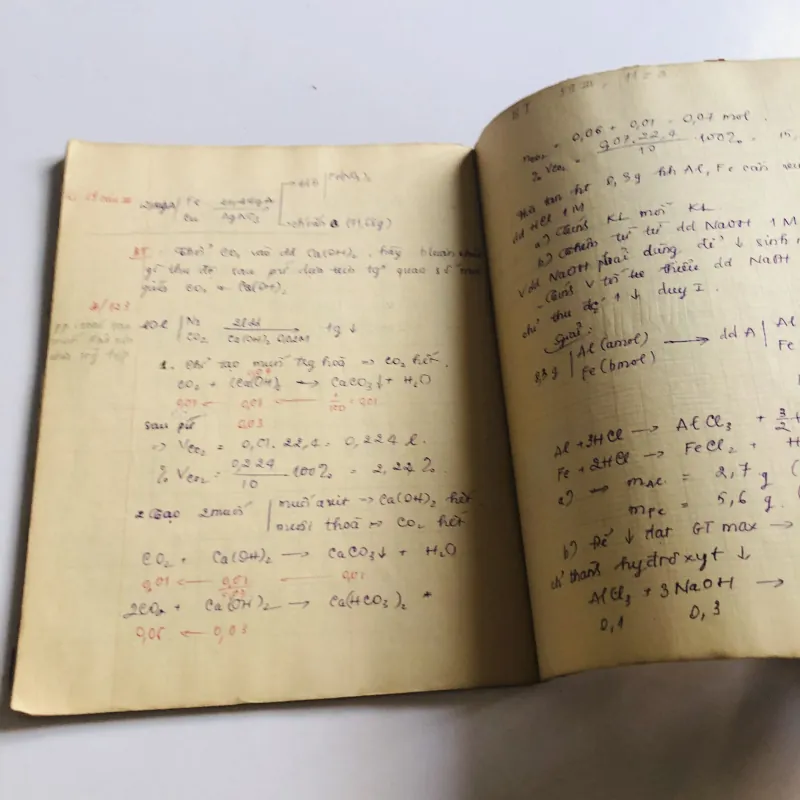 Fe
Cu
AgNO₃
BT: Thổi CO₂ vào dd Ca(OH)₂, hãy
gì thu đc sau pứ dựa trên tg² quan số mol
giữa CO₂ & Ca(OH)₂
2/123
10l | N₂ CO₂ → Ca(OH)₂ 0,02M 1g ↓
1. Chỉ tạo muối trg hoà ⇒ CO₂ hết.
CO₂ + Ca(OH)₂ → CaCO₃↓ + H₂O
0,01
sau pứ 0,03
⇒ V CO₂ = 0,01. 22,4 = 0,224 l.
% V CO₂ = 0,224/10 . 100% = 2,24%.
2. Tạo 2 muối | muối axit ⇒ Ca(OH)₂ hết
muối trg hoà ⇒ CO₂ hết
CO₂ + Ca(OH)₂ → CaCO₃↓ + H₂O
0,01 ← 0,01 ← 0,01
2CO₂ + Ca(OH)₂ → Ca(HCO₃)₂ *
0,06 ← 0,03
BT
= 0,06 + 0,01 = 0,07 mol.
% V CO₂ = 0,07.22,4/10 . 100% = 15,
8,3g hh Al, Fe cần
dd HCl 1M
a) Tính KL mỗi KL
b) Thêm từ từ dd NaOH 1M
V dd NaOH phải dùng để ↓ sinh
Tính V tối thiểu dd NaOH
chỉ thu đc 1 ↓ duy I.
Giải:
8,3g | Al (a mol) Fe (b mol) → dd A | Al Fe
Al + 3HCl → AlCl₃ + 3/2
Fe + 2HCl → FeCl₂ + H
a) → m Al = 2,7 g (
m Fe = 5,6 g. (
b) Để ↓ đạt GT max →
chỉ thành hyđrôxyt ↓
AlCl₃ + 3NaOH →
0,1 0,3